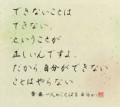 できないことは
できない、
ということが
正しいんですよ。
だから自分ができない
ことはやらない